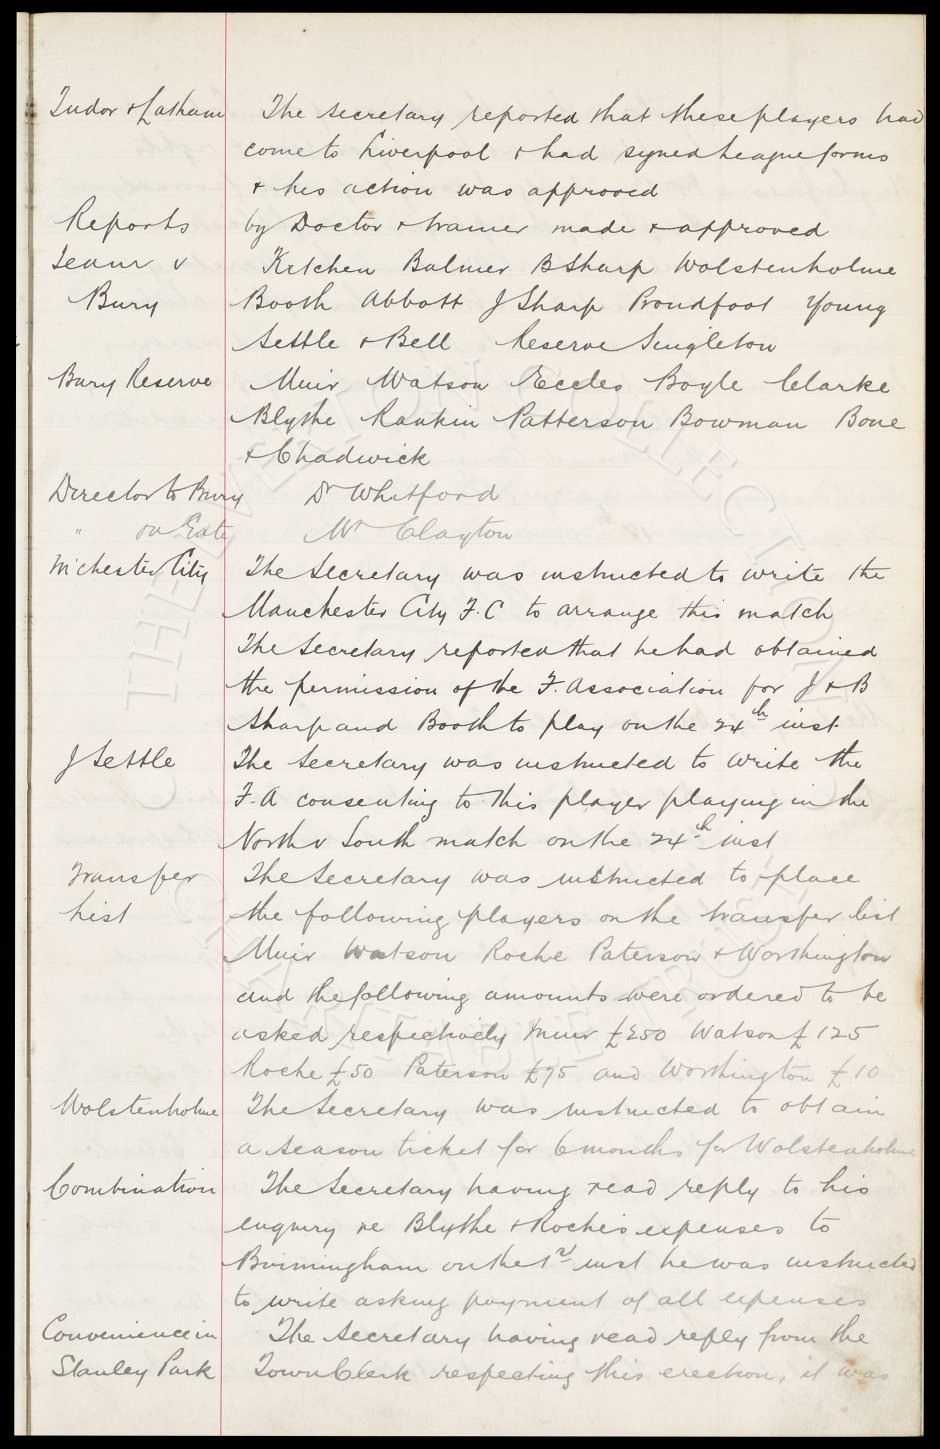 Tudor & Latham The Secretary reported that these players had
come to Liverpool & had signed League forms
& his action was approved
Reports by Doctor & trainer made & approved
Team v Kitchen Balmer B Sharp Wolstenholme
Bury Booth Abbott J Sharp Proudfoot Young
Settle & Bell Reserve Singleton
Bury Reserve Muir Watson Eccles Boyle Clarke
Blythe Rankin Patterson Bowman Bone
& Chadwick
Director to Bury Dr Whitford
" on Gate Mr Clayton
M'chester City The Secretary was instructed to write the
Manchester City F.C to arrange this match
The Secretary reported that he had obtained
the permission of the F. Association for J & B
Sharp and Booth to play on the 24th inst.
J Settle The Secretary was instructed to write the
F.A consenting to this player playing in the
North v South match on the 24th inst
Transfer The Secretary was instructed to place
List the following players on the transfer list
Muir Watson Roche Paterson & Worthington
and the following amounts were ordered to be
asked respectively Muir £250 Watson £125
Roche £50 Paterson £75 and Worthington £10
Wolstenholme The Secretary was instructed to obtain
a season ticket for 6 months for Wolstenholme
Combination The Secretary having read reply to his
enquiry re Blythe & Roche's expenses to
Birmingham on the inst he was instructed
to write asking payment of all expenses
Convenience in The Secretary having read reply from the
Stanley Park Town Clerk respecting this erection, it was
THE EVERTON COLLECTION